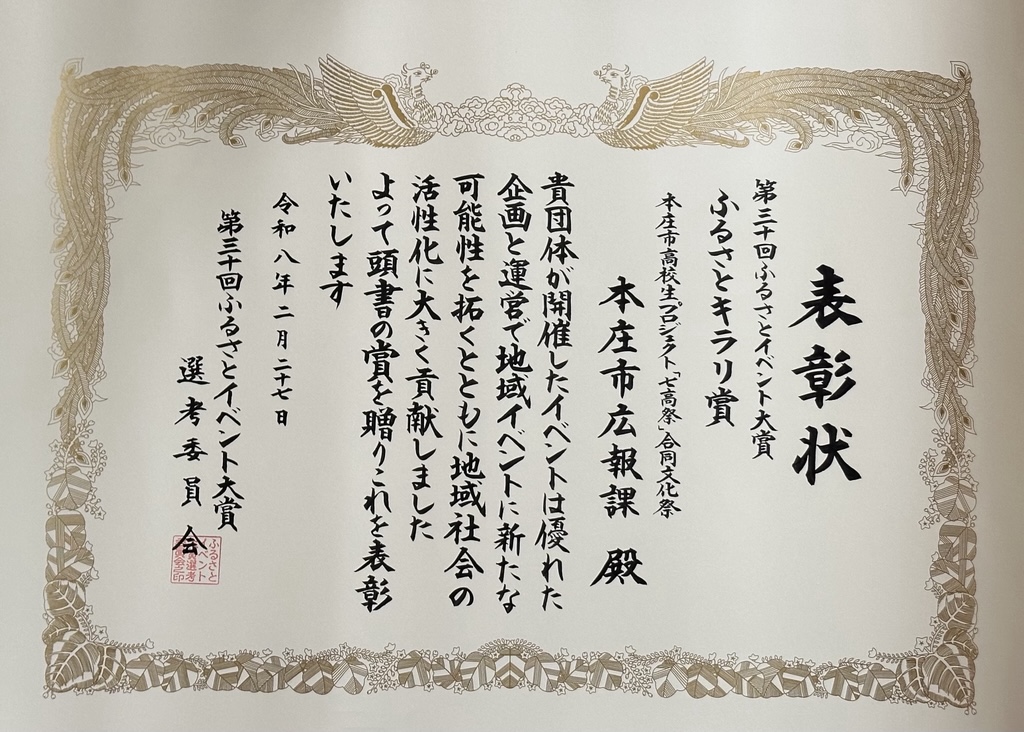 表彰状
第三十回ふるさとイベント大賞
ふるさとキラリ賞
本庄市高校生プロジェクト「七高祭」合同文化祭
本庄市広報課 殿
貴団体が開催したイベントは優れた
企画と運営で地域イベントに新たな
可能性を拓くとともに地域社会の
活性化に大きく貢献しました
よって頭書の賞を贈りこれを表彰
いたします
令和八年二月二十七日
第三十回ふるさとイベント大賞
選考委員会
ふるさと
イベント
大賞選考
委員会之印